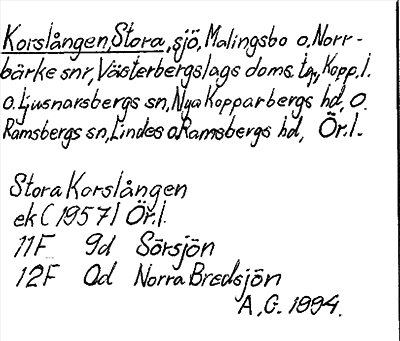 Korslången, Stora, sjö, Malingsbo o. Norr-
bärke snr, Västerbergslags doms. tg, Kopp. l.
o. Ljusnarsbergs sn, Nya Kopparbergs hd, o.
Ramsbergs sn, Lindes o Ramsbergs hd, Ör. l.
Stora Korslången
ek (1957) Ör. l.
11F 9d Sörsjön
12F 0d Norra Bredsjön
A. G. 1994.